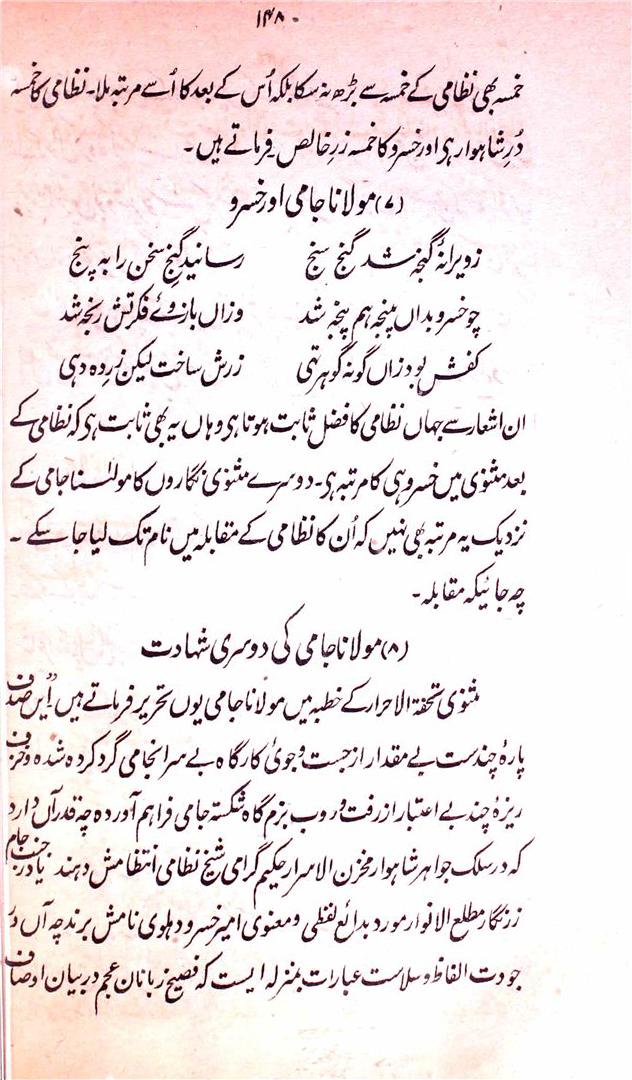 ۱۴۸
خمسہ بھی نظامی کے خمسہ سے بڑھ نہ سکا بلکہ اُس کے بعد کا اُسے مرتبہ ملا۔ نظامی کا خمسہ
دُرِ شاہوار ہی اور خسرو کا خمسہ زرِ خالص فرماتے ہیں۔
(۷) مولانا جامی اور خسرو
زویرانۂ گنجہ شد گنج سنج رسانید گنجِ سخن را بہ پنج
چو خسرو بداں پنجہ ہم پنجہ شد وزاں بازوئے فکرتش رنجہ شد
کفش بود زاں گونہ گوہر تہی زرش ساخت لیکن زِ دہ دہی
ان اشعار سے جہاں نظامی کا فضل ثابت ہوتا ہی وہاں یہ بھی ثابت ہی کہ نظامی کے
بعد مثنوی میں خسرو ہی کا مرتبہ ہی۔ دوسرے مثنوی نگاروں کا مولٰنا جامی کے
نزدیک یہ مرتبہ بھی نہیں کہ اُن کا نظامی کے مقابلہ میں نام تک لیا جا سکے ۔
چہ جائیکہ مقابلہ۔
(۸) مولانا جامی کی دوسری شہادت
مثنوی تحفۃ الاحرار کے خطبہ میں مولانا جامی یوں تحریر فرماتے ہیں "ایں صدف
پارۂ چندست بے مقدار از جست و جوئ کارگاہ بے سرانجامی گرد کردہ شدہ وخزف
ریزۂ چند بے اعتبار از رفت و روب بزم گاہ شکستہ جامی فراہم آوردہ چہ قدر آں دارد
کہ در سلک جواہر شاہوار مخزن الاسرار حکیم گرامی شیخ نظامی انتظامش دہند یا در جنب جام
زرنگار مطلع الانوار مورد بدائع لفظی و معنوی امیر خسرو دہلوی نامش برند چہ آں در
جودت الفاظ و سلاست عبارات بمنزلہ ایست کہ فصیح زبانان عجم در بیان اوصاف